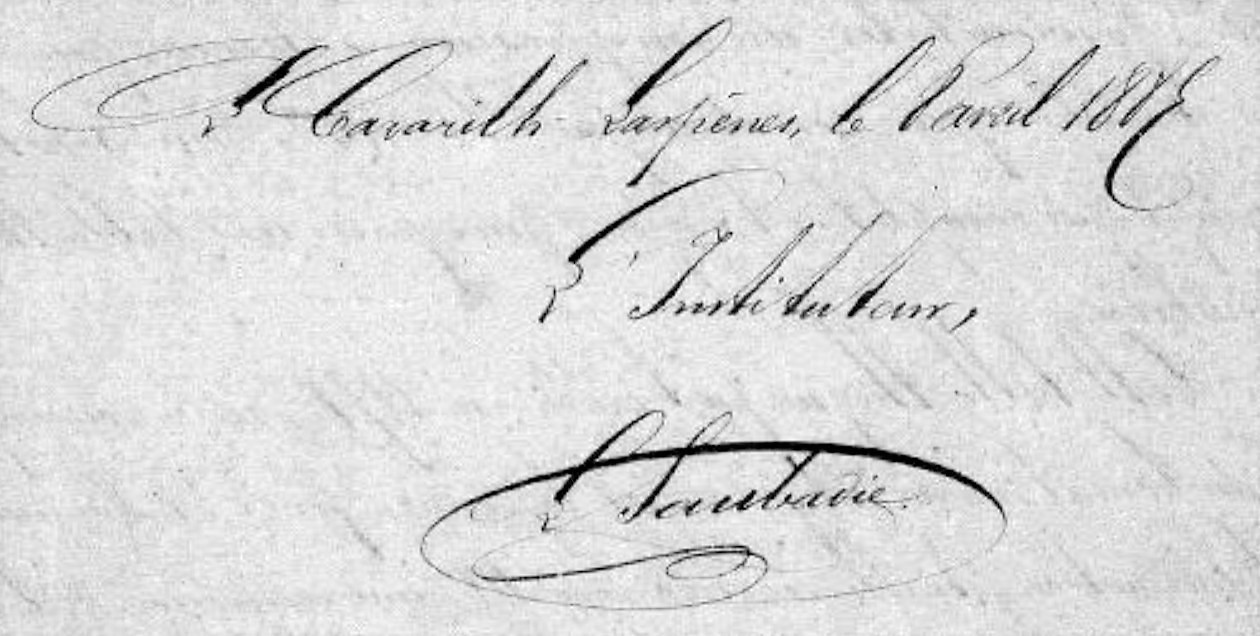 A Cazarilh-Laspènes, le avril
L'Instituteur,
Saubadie